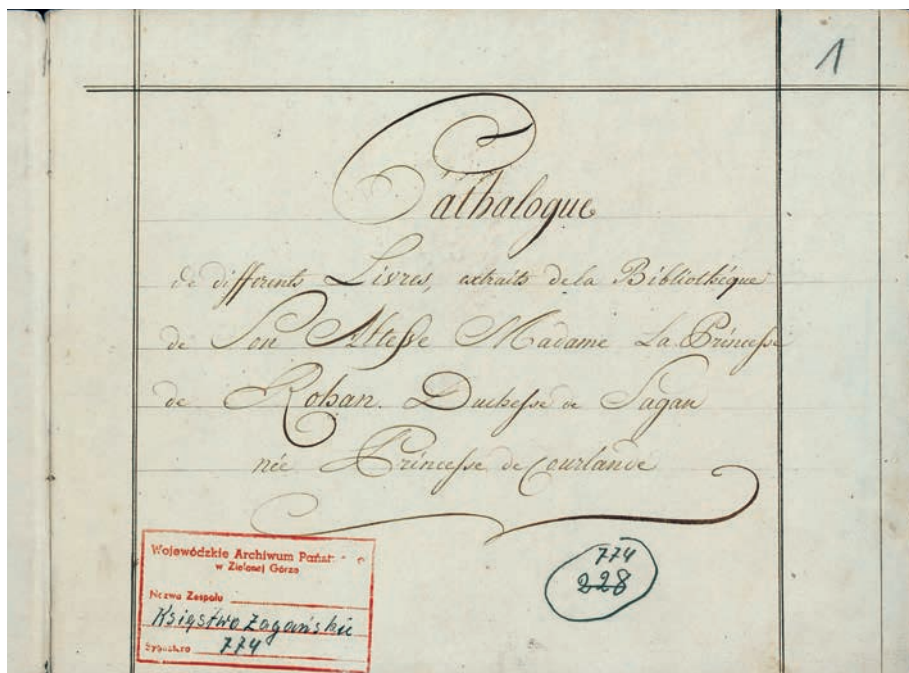 1
Cathalogue
de differents Livres, extraits de la Bibliothéque
de Son Altesse Madame La Princesse
de Rohan. Duchesse de Sagan
née Princesse de Courlande
774
228
Wojewódzkie Archiwum Państ
w Zielonej Górze
Nazwa Zespołu
Księstwo Żagańskie
774